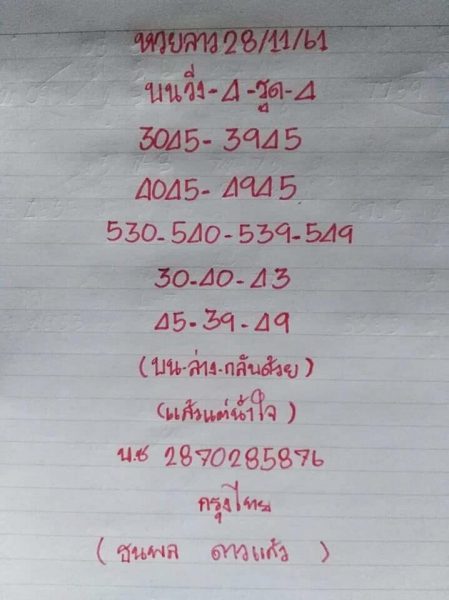 หวยลาว 28/11/61
บนวิ่ง-4-รูด-4
3045-3945
4045-4945
530-540-539-549
30-40-43
45-39-49
(บน-ล่าง-กลับด้วย)
(แล้วแต่น้ำใจ)
บ.ช 2870285876
กรุงไทย
(ธนพล ดาวแก้ว)